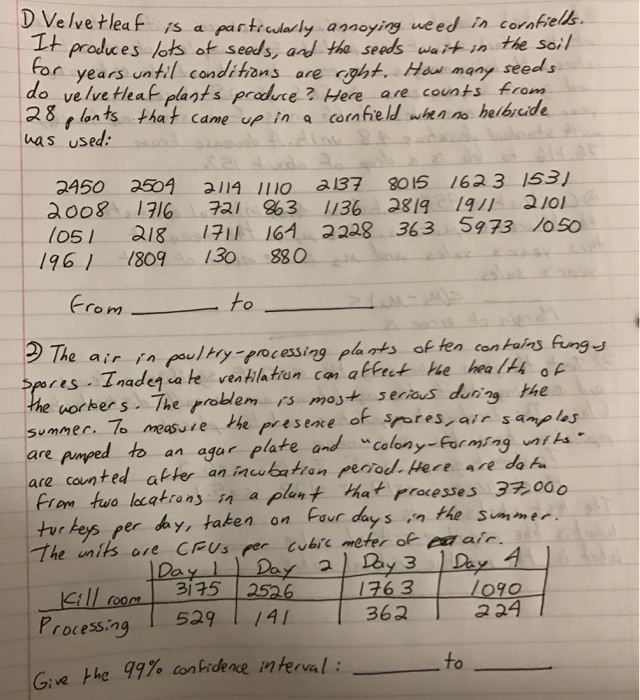 1) Velvetleaf is a particularly annoying weed in cornfields.
It produces lots of seeds, and the seeds wait in the soil
for years until conditions are right. How many seeds
do velvetleaf plants produce? Here are counts from
28 plants that came up in a cornfield when no herbicide
was used:
2450 2504 2114 1110 2137 8015 1623 1531
2008 1716 721 863 1136 2819 1911 2101
1051 218 1711 164 2228 363 5973 1050
1961 1809 130 880
from ____ to ____
2) The air in poultry-processing plants often contains fungus
spores. Inadequate ventilation can affect the health of
the workers. The problem is most serious during the
summer. To measure the presence of spores, air samples
are pumped to an agar plate and "colony-forming units"
are counted after an incubation period. Here are data
from two locations in a plant that processes 37,000
turkeys per day, taken on four days in the summer.
The units are CFUs per cubic meter of air.
Day 1 Day 2 Day 3 Day 4
Kill room 3175 2526 1763 1090
Processing 529 141 362 224
Give the 99% confidence interval: ____ to ____